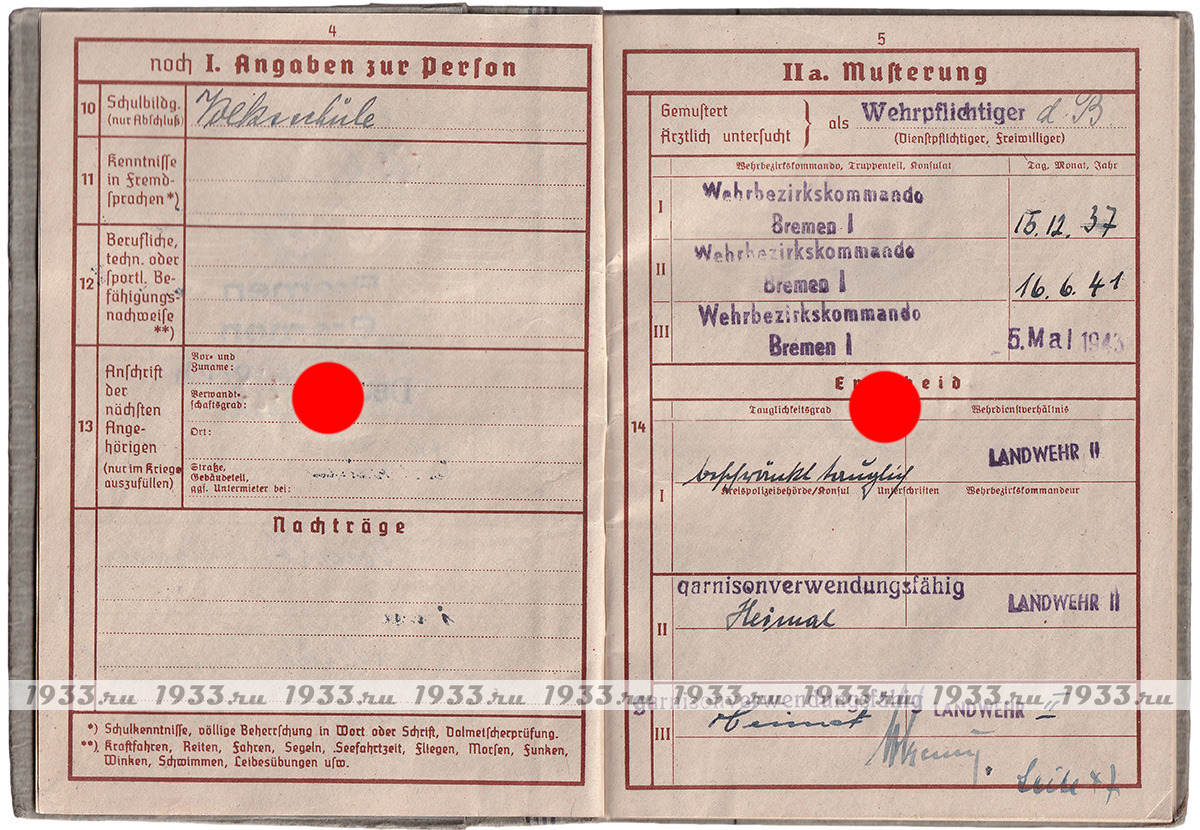 4
noch I. Angaben zur Person
10
Schulbildg.
(nur Abschluß)
Volksschule
11
Kenntnisse
in Fremd-
sprachen *)
12
Berufliche,
techn. oder
sportl. Be-
fähigungs-
nachweise
**)
13
Anschrift
der
nächsten
Ange-
hörigen
(nur im Kriege
auszufüllen)
Vor- und
Zuname:
Verwandt-
schaftsgrad:
Ort:
Straße,
Gebäudeteil,
ggf. Untermieter bei:
Nachträge
*) Schulkenntnisse, völlige Beherrschung in Wort oder Schrift, Dolmetscherprüfung.
**) Kraftfahren, Reiten, Fahren, Segeln, Seefahrtzeit, Fliegen, Morsen, Funken,
Winken, Schwimmen, Leibesübungen usw.
5
IIa. Musterung
Gemustert
Ärztlich untersucht
als Wehrpflichtiger d. B.
(Dienstpflichtiger, Freiwilliger)
Wehrbezirkskommando, Truppenteil, Konsulat
Tag, Monat, Jahr
I
Wehrbezirkskommando
Bremen I
15.12.37
II
Wehrbezirkskommando
Bremen I
16.6.41
III
Wehrbezirkskommando
Bremen I
5. Mai 1943
14
Tauglichkeitsgrad
Wehrdienstverhältnis
I
beschränkt tauglich
LANDWEHR II
Kreispolizeibehörde/Konsul
Unterschriften
Wehrbezirkskommandeur
II
garnisonverwendungsfähig
Heimat
LANDWEHR II
III
garnisonverwendungsfähig
Heimat
LANDWEHR II
1933.ru 1933.ru 1933.ru 1933.ru 1933.ru 1933.ru 1933.ru 1933.ru 1933.ru